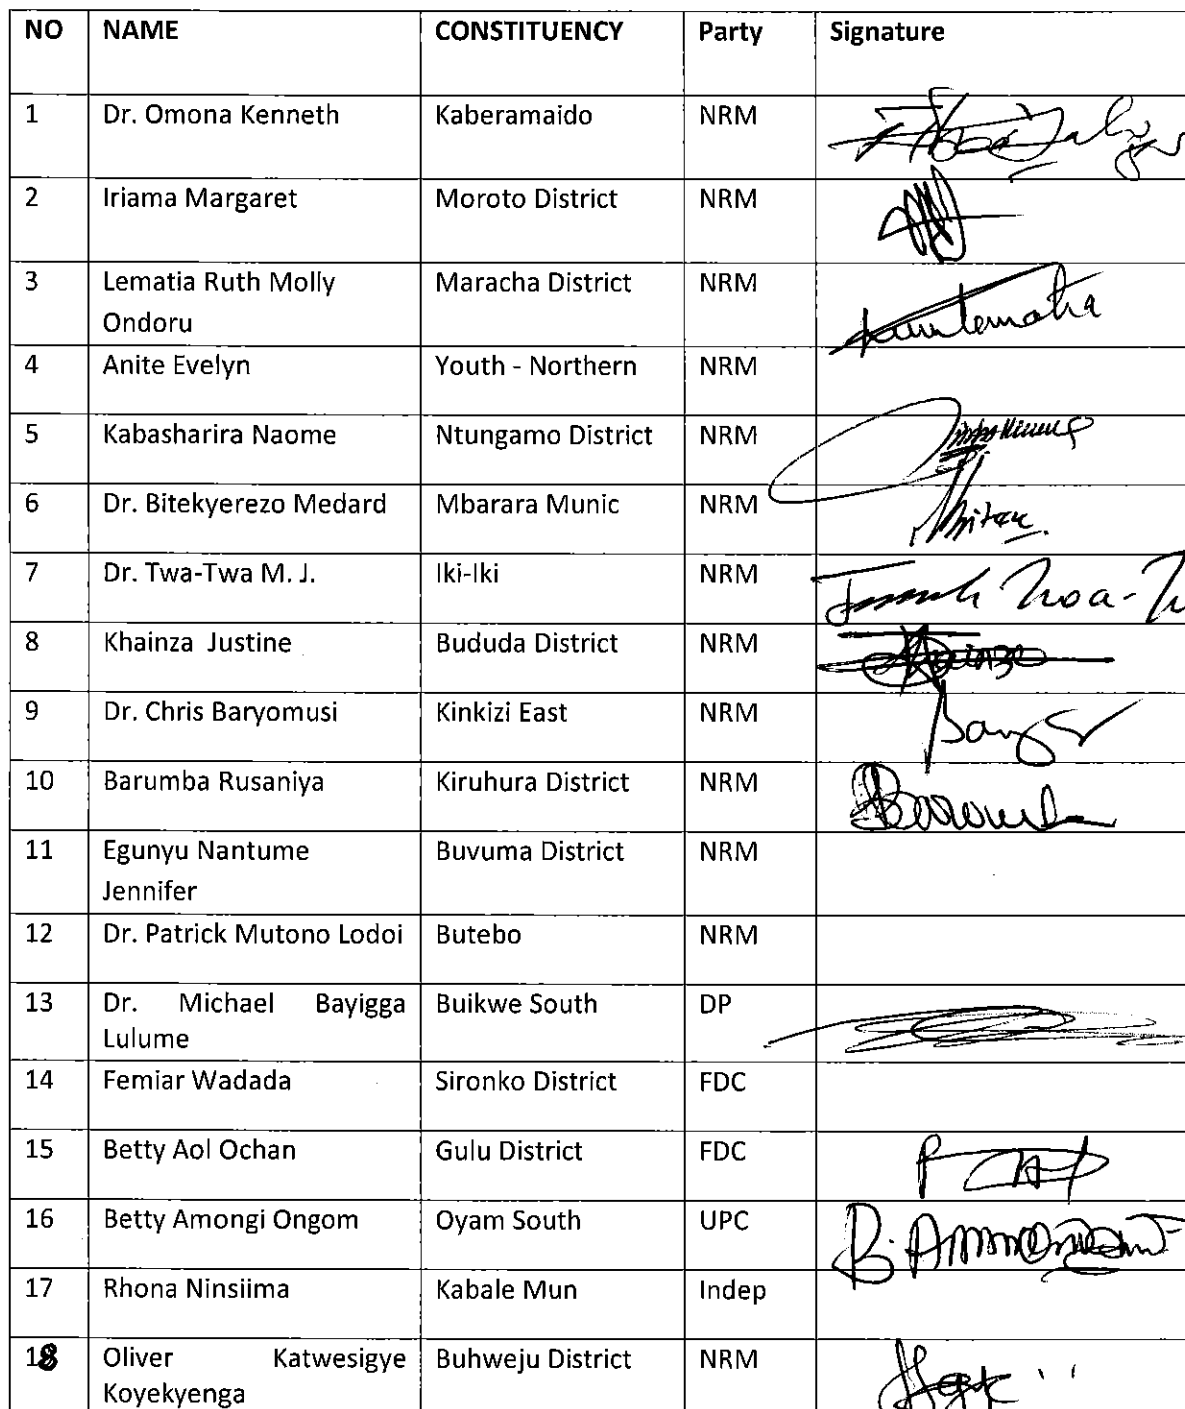 NO NAME CONSTITUENCY Party Signature
1 Dr. Omona Kenneth Kaberamaido NRM
2 Iriama Margaret Moroto District NRM
3 Lematia Ruth Molly Maracha District NRM
Ondoru
4 Anite Evelyn Youth - Northern NRM
5 Kabasharira Naome Ntungamo District NRM
6 Dr. Bitekyerezo Medard Mbarara Munic NRM
7 Dr. Twa-Twa M. J. Iki-Iki NRM
8 Khainza Justine Bududa District NRM
9 Dr. Chris Baryomusi Kinkizi East NRM
10 Barumba Rusaniya Kiruhura District NRM
11 Egunyu Nantume Buvuma District NRM
Jennifer
12 Dr. Patrick Mutono Lodoi Butebo NRM
13 Dr. Michael Bayigga Buikwe South DP
Lulume
14 Femiar Wadada Sironko District FDC
15 Betty Aol Ochan Gulu District FDC
16 Betty Amongi Ongom Oyam South UPC
17 Rhona Ninsiima Kabale Mun Indep
18 Oliver Katwesigye Buhweju District NRM
Koyekyenga